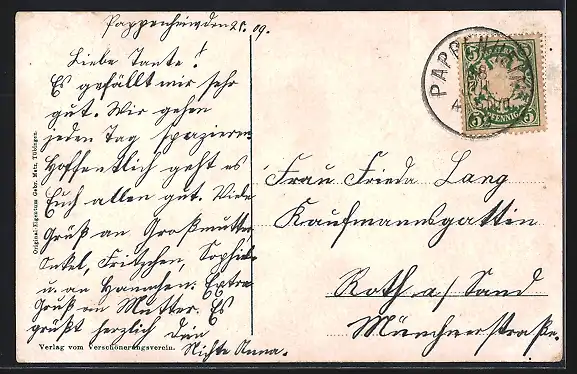 Pappenheim, den 25. 09.
Liebe Tante!
Es gefällt mir sehr
gut. Wir gehen
jeden Tag spazieren.
Hoffentlich geht es
Euch allen gut. Viele
Grüß an Großmutter,
Onkel, Fritzchen, Sophie
u. an Hannchen. Extra
Gruß an Mutter. Es
grüßt herzlich Dein
Nichte Anna.
Verlag vom Verschönerungsverein.
Original-Eigentum Gebr. Metz, Tübingen.
PAPPENHEIM
5 PFENNIG 5
Frau Frieda Lang
Kaufmannsgattin
Roth a/ Sand
Münchnerstraße.